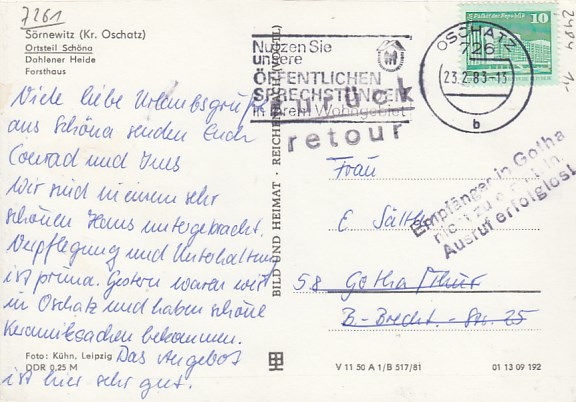 7261
Sörnewitz (Kr. Oschatz)
Ortsteil Schöna
Dahlener Heide
Forsthaus
Viele liebe Urlaubsgrüße
aus Schöna senden Euch
Conrad und Ines
Wir sind in einem sehr
schönen Haus untergebracht.
Verpflegung und Unterhaltung
ist prima. Gestern waren wir
in Oschatz und haben schöne
Keramiksachen bekommen.
Das Angebot
ist hier sehr gut.
Foto: Kühn, Leipzig
DDR 0,25 M
BILD UND HEIMAT · REICHENBACH (VOGTL)
Nutzen Sie
unsere
ÖFFENTLICHEN
SPRECHSTUNDEN
in Ihrem Wohngebiet
zurück
retour
OSCHATZ
726
23.2.83-13
b
Palast der Republik
10
2484
Empfänger in Gotha
Ausruf erfolglos!
Frau
E.
58 Gotha/Thür
B.-Brecht-Str. 25
V 11 50 A 1/B 517/81
01 13 09 192